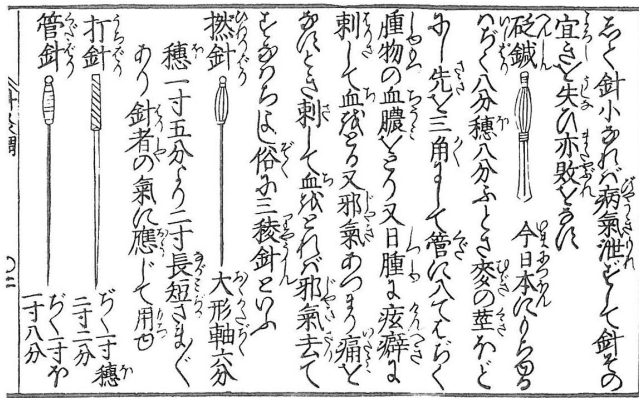 しく針小なれバ病氣泄どして針その
宜きを失ひ亦敗をなす
砭鍼 今日本にもちゆる
ぢく八分穂八分ふとさ麥の茎ほど
にし先を三角にして管に入てはぢく
腫物の血膿をとり又日腫に痃癖に
刺して血をとる又邪氣あつまり痛を
なすとき刺して血をとれバ邪氣去て
すなはちよし俗に三稜針といふ
撚針 大形軸六分
穂一寸五分より二寸長短さま〴〵
あり針者の氣に應じて用也
打針 ぢく一寸穂
二寸二分
管針 ぢく一寸ほ
一寸八分